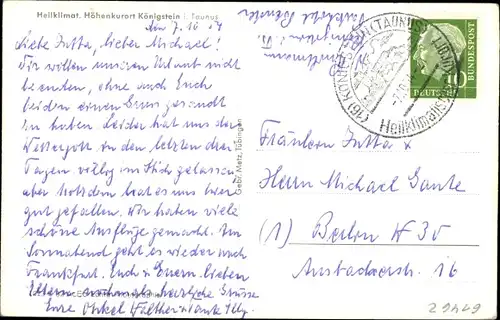 Heilklimat. Höhenkurort Königstein i. Taunus
den 7.10.54
Liebe Jutta, lieber Michael!
Wir wollen unseren Urlaub nicht
beenden, ohne auch Euch
beiden einen Gruss gesandt
zu haben. Leider hat uns der
Wettergott in den letzten drei
Tagen völlig im Stich gelassen,
aber trotzdem hat es uns hier
gut gefallen. Wir haben viele
schöne Ausflüge gemacht. Am
Sonnabend geht es wieder nach
Frankfurt. Euch u. Euern lieben
Eltern nochmals herzliche Grüsse
Eure Onkel Walther u. Tante Elly.
Gebr. Metz, Tübingen
(16) KÖNIGSTEIN (TAUNUS)
Heilklimatischer
DEUTSCHE
BUNDESPOST
10
Fräulein Jutta u.
Herrn Michael Gante
(1) Berlin W 30
Ansbacherstr. 16
29429